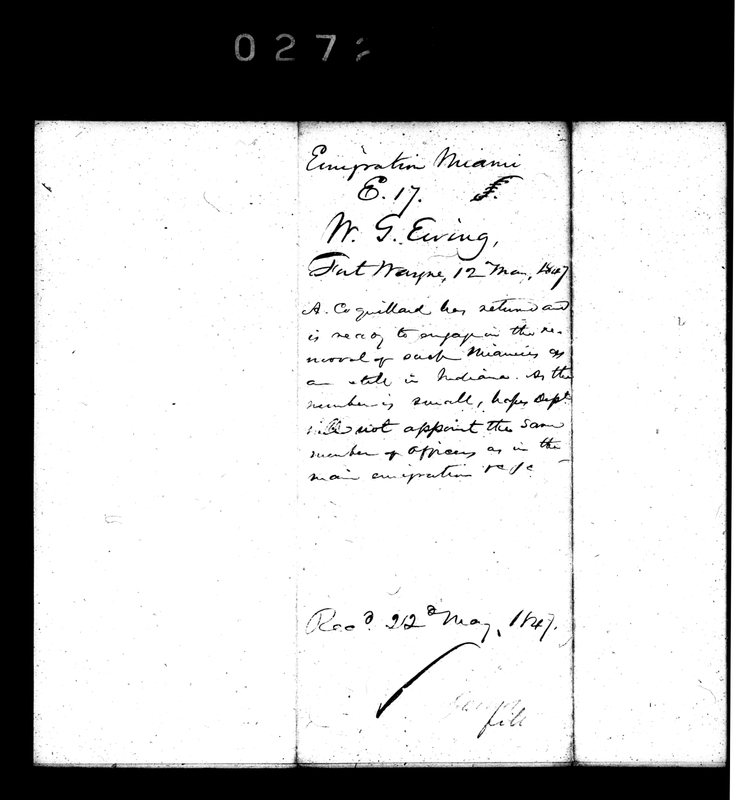 027
Emigration Miami
E. 17.
W. G. Ewing,
Fort Wayne, 12 May, 1847
A. Coquillard has returnd and
is ready to engage in the re-
moval of such Miamies as
are still in Indiana. As the
number is small, hopes Dept.
will not appoint the same
number of officers as in the
main emigration &c &c
Recd. 22d May, 1847.
file